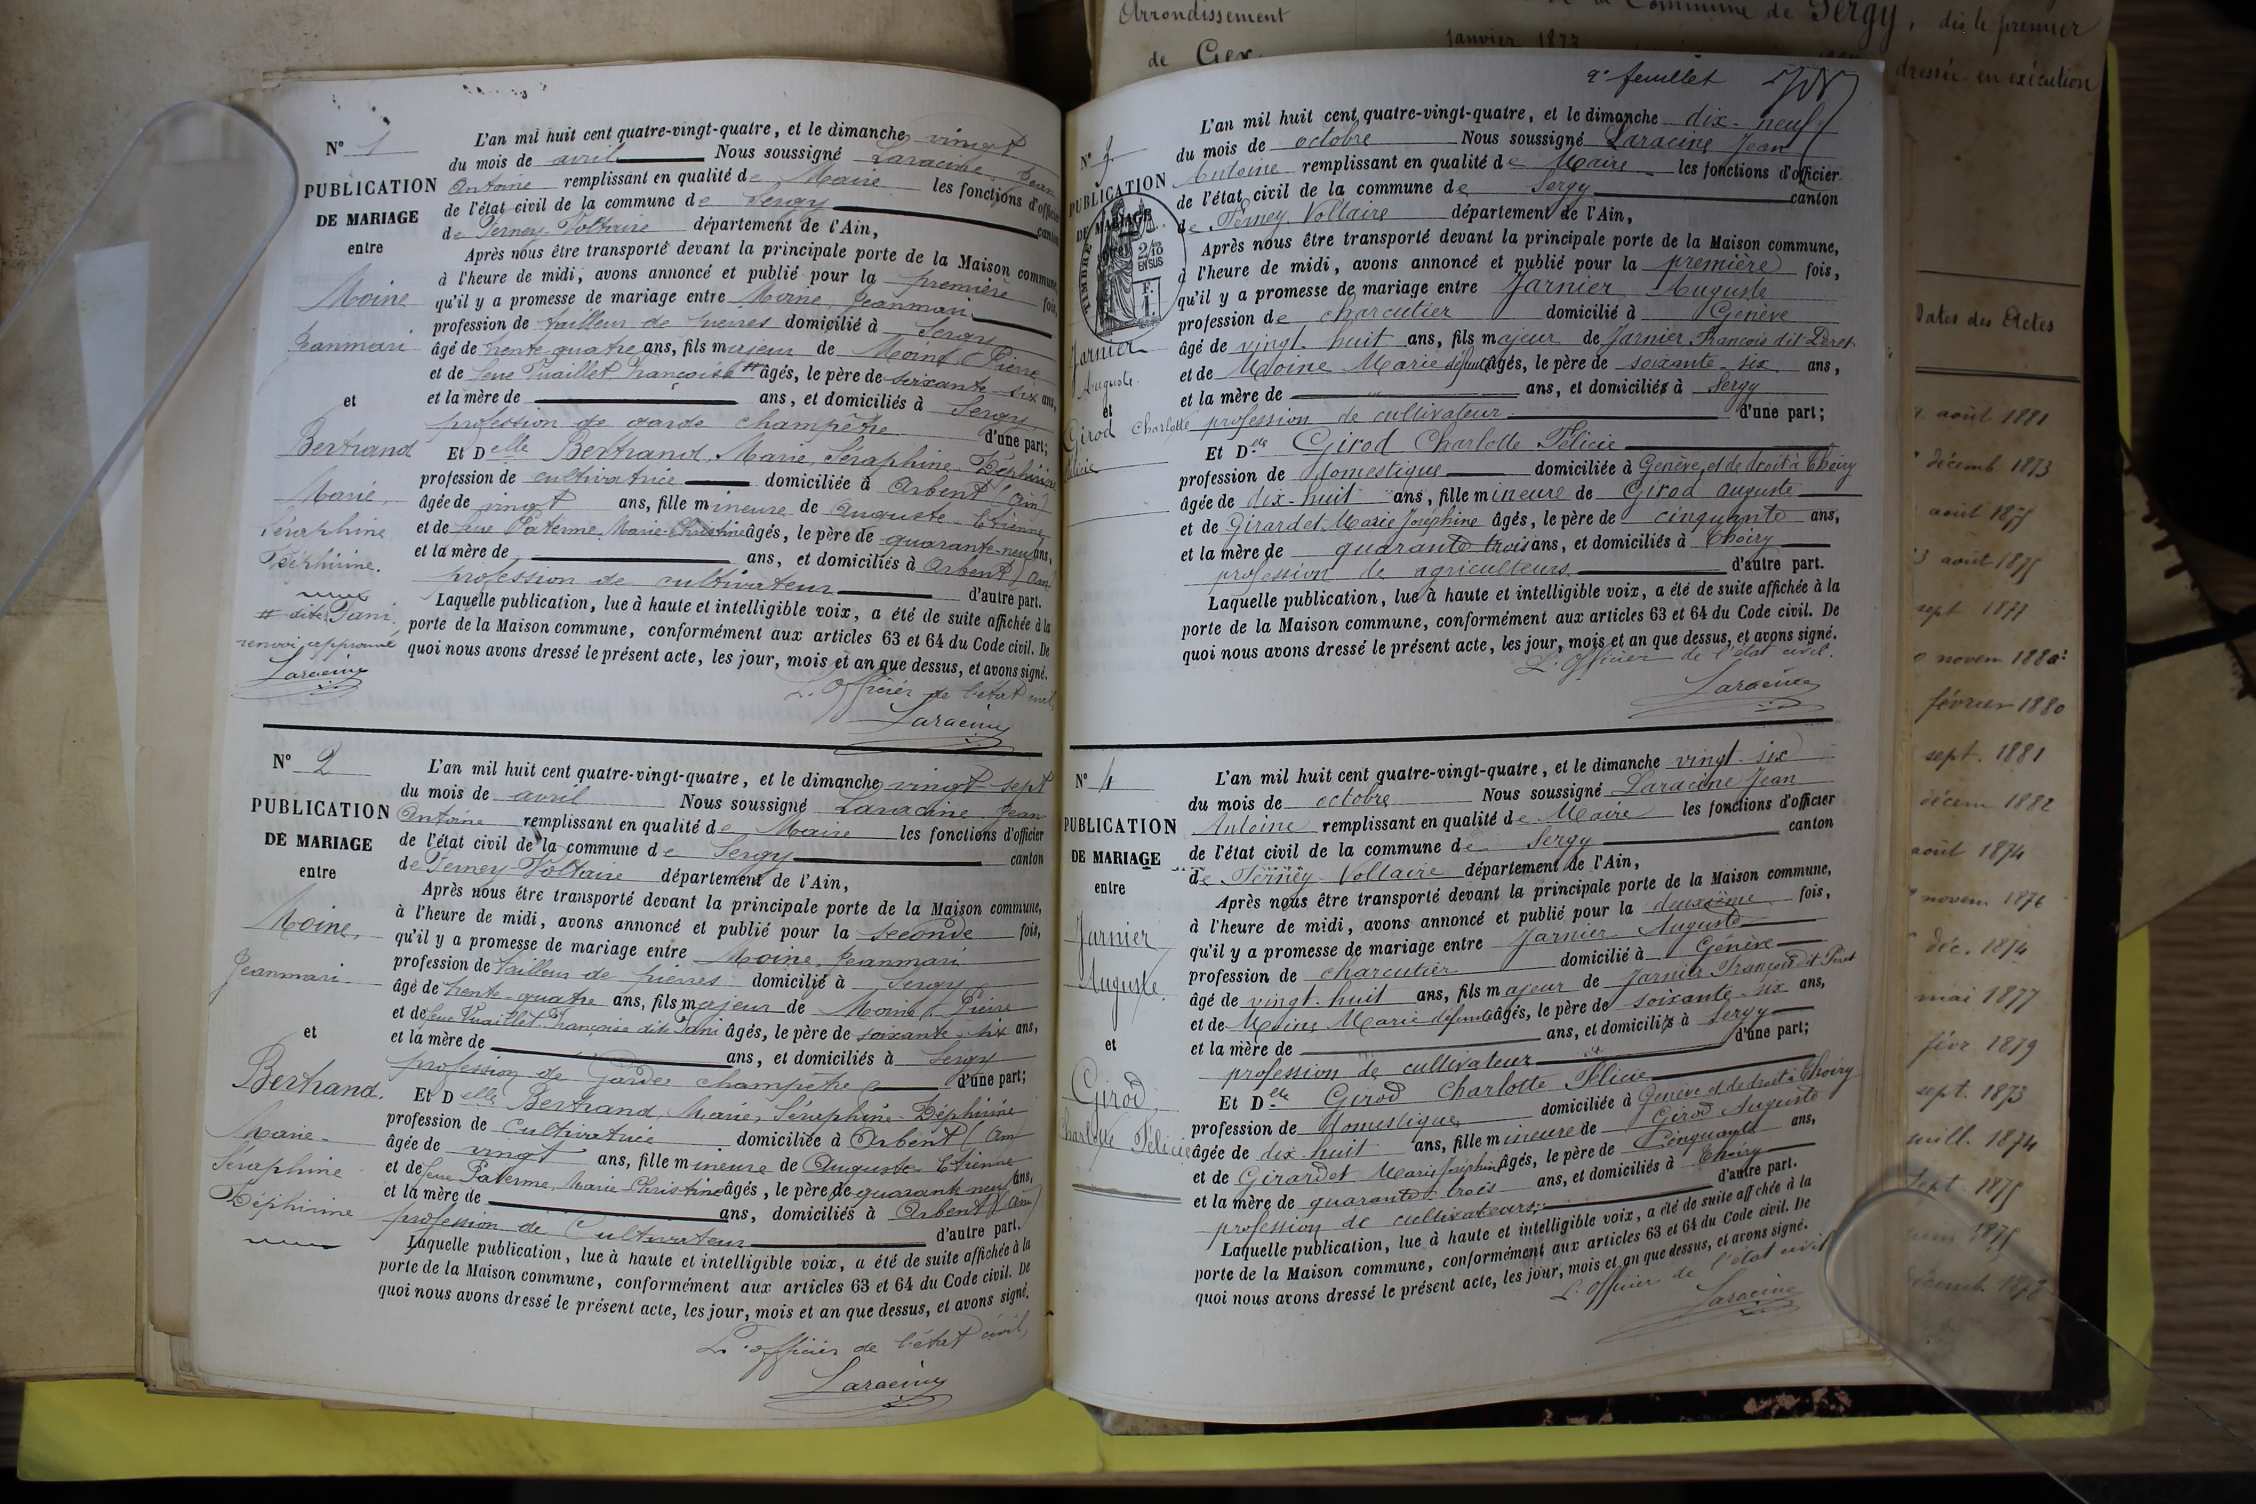 N° 1
PUBLICATION
DE MARIAGE
entre
Moine
Jeanmari
et
Bertrand
Marie,
Séraphine
Zéphirine.
# dite Jani.
renvoi approuvé
Laracine
L'an mil huit cent quatre-vingt-quatre, et le dimanche vingt
du mois de avril Nous soussigné Laracine, Jean
Antoine remplissant en qualité de Maire les fonctions d'officier
de l'état civil de la commune de Sergy canton
de Ferney-Voltaire département de l'Ain,
Après nous être transporté devant la principale porte de la Maison commune,
à l'heure de midi, avons annoncé et publié pour la première fois,
qu'il y a promesse de mariage entre Moine, Jeanmari
profession de tailleur de pierres domicilié à Sergy
âgé de trente-quatre ans, fils majeur de Moine, Pierre
et de feue Vuaillet Françoise # âgés, le père de soixante-six ans,
et la mère de ans, et domiciliés à Sergy
profession de garde champêtre d'une part;
Et Delle Bertrand, Marie, Séraphine Zéphirine
profession de cultivatrice domiciliée à Arbent (Ain)
âgée de vingt ans, fille mineure de Auguste-Etienne
et de feue Paterme, Marie-Christine âgés, le père de quarante-neuf ans,
et la mère de ans, et domiciliés à Arbent (Ain)
profession de cultivateur d'autre part.
Laquelle publication, lue à haute et intelligible voix, a été de suite affichée à la
porte de la Maison commune, conformément aux articles 63 et 64 du Code civil. De
quoi nous avons dressé le présent acte, les jour, mois et an que dessus, et avons signé.
L'officier de l'état civil,
Laracine
N° 2
PUBLICATION
DE MARIAGE
entre
Moine,
Jeanmari
et
Bertrand.
Marie
Séraphine
Zéphirine
L'an mil huit cent quatre-vingt-quatre, et le dimanche vingt-sept
du mois de avril Nous soussigné Laracine Jean
Antoine remplissant en qualité de Maire les fonctions d'officier
de l'état civil de la commune de Sergy canton
de Ferney-Voltaire département de l'Ain,
Après nous être transporté devant la principale porte de la Maison commune,
à l'heure de midi, avons annoncé et publié pour la seconde fois,
qu'il y a promesse de mariage entre Moine, Jeanmari
profession de tailleur de pierres domicilié à Sergy
âgé de trente-quatre ans, fils majeur de Moine, Pierre
et de feue Vuaillet Françoise dite Jani âgés, le père de soixante-six ans,
et la mère de ans, et domiciliés à Sergy
profession de Garde champêtre d'une part;
Et Delle Bertrand, Marie, Séraphine-Zéphirine
profession de Cultivatrice domiciliée à Arbent (Ain)
âgée de vingt ans, fille mineure de Auguste Etienne
et de feue Paterme, Marie-Christine âgés, le père de quarante-neuf ans,
et la mère de ans, domiciliés à Arbent (Ain)
profession de Cultivateur d'autre part.
Laquelle publication, lue à haute et intelligible voix, a été de suite affichée à la
porte de la Maison commune, conformément aux articles 63 et 64 du Code civil. De
quoi nous avons dressé le présent acte, les jour, mois et an que dessus, et avons signé.
L'officier de l'état civil,
Laracine
2e feuillet
N° 3
PUBLICATION
DE MARIAGE
TIMBRE
2/10
EN SUS
Jarnier
Auguste
et
Girod Charlotte
Félicie
L'an mil huit cent quatre-vingt-quatre, et le dimanche dix-neuf
du mois de octobre Nous soussigné Laracine Jean
Antoine remplissant en qualité de Maire les fonctions d'officier
de l'état civil de la commune de Sergy canton
de Ferney Voltaire département de l'Ain,
Après nous être transporté devant la principale porte de la Maison commune,
à l'heure de midi, avons annoncé et publié pour la première fois,
qu'il y a promesse de mariage entre Jarnier Auguste
profession de charcutier domicilié à Genève
âgé de vingt-huit ans, fils majeur de Jarnier François dit Péret
et de Moine Marie défunte âgés, le père de soixante-six ans,
et la mère de ans, et domiciliés à Sergy
profession de cultivateur d'une part;
Et Delle Girod Charlotte Félicie
profession de domestique domiciliée à Genève et de droit à Thoiry
âgée de dix-huit ans, fille mineure de Girod Auguste
et de Girardet Marie Joséphine âgés, le père de cinquante ans,
et la mère de quarante trois ans, et domiciliés à Thoiry
profession de agriculteurs d'autre part.
Laquelle publication, lue à haute et intelligible voix, a été de suite affichée à la
porte de la Maison commune, conformément aux articles 63 et 64 du Code civil. De
quoi nous avons dressé le présent acte, les jour, mois et an que dessus, et avons signé.
L'officier de l'état civil.
Laracine
N° 4
PUBLICATION
DE MARIAGE
entre
Jarnier
Auguste
et
Girod
Charlotte Félicie
L'an mil huit cent quatre-vingt-quatre, et le dimanche vingt-six
du mois de octobre Nous soussigné Laracine Jean
Antoine remplissant en qualité de Maire les fonctions d'officier
de l'état civil de la commune de Sergy canton
de Ferney-Voltaire département de l'Ain,
Après nous être transporté devant la principale porte de la Maison commune,
à l'heure de midi, avons annoncé et publié pour la deuxième fois,
qu'il y a promesse de mariage entre Jarnier Auguste
profession de charcutier domicilié à Génève
âgé de vingt-huit ans, fils majeur de Jarnier François dit Péret
et de Moine Marie défunte âgés, le père de soixante-six ans,
et la mère de ans, et domiciliés à Sergy
profession de cultivateur d'une part;
Et Delle Girod Charlotte Félicie
profession de domestique domiciliée à Genève et de droit à Thoiry
âgée de dix-huit ans, fille mineure de Girod Auguste
et de Girardet Marie Joséphine âgés, le père de cinquante ans,
et la mère de quarante-trois ans, et domiciliés à Thoiry
profession de cultivateurs d'autre part.
Laquelle publication, lue à haute et intelligible voix, a été de suite affichée à la
porte de la Maison commune, conformément aux articles 63 et 64 du Code civil. De
quoi nous avons dressé le présent acte, les jour, mois et an que dessus, et avons signé.
L'officier de l'état civil
Laracine
Arrondissement
de Gex
la Commune de Sergy, dès le premier
janvier 1873
dressée en exécution
Dates des Actes
août 1881
décemb 1873
août 1875
août 1875
sept 1877
novem 1880
février 1880
sept. 1881
décem 1882
août 1874
novem 1876
déc. 1874
mai 1877
févr. 1879
sept. 1873
juill. 1874
sept. 1875
1875